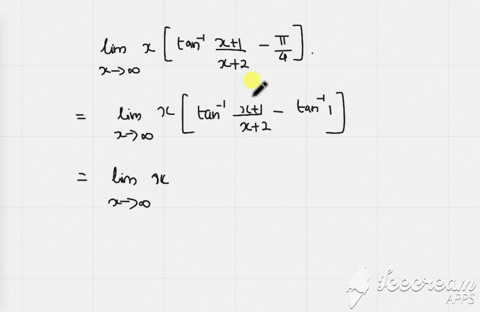 lim x→∞ x [ tan⁻¹ (x+1)/(x+2) − π/4 ].
= lim x→∞ x [ tan⁻¹ (x+1)/(x+2) − tan⁻¹ 1 ]
= lim x→∞ x
Icecream
APPS